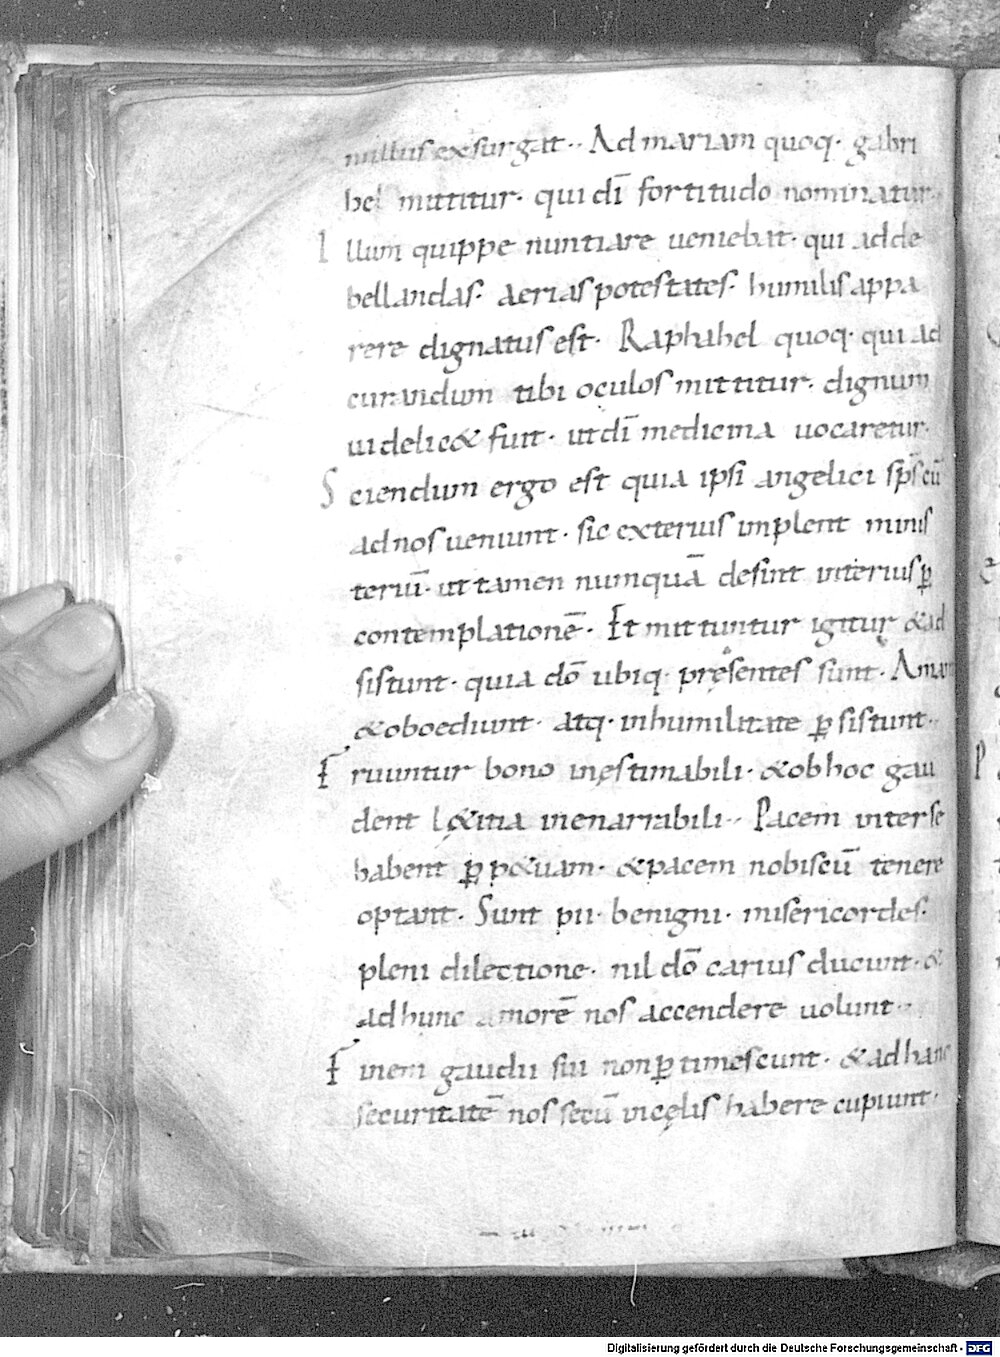 millus exsurgat·· Ad mariam quoq· gabri
hel mittitur· qui dī fortitudo nominatur·
Illum quippe nuntiare ueniebat· qui adde
bellandas· aerias potestates· humilis appa
rere dignatus est· Raphahel quoq· qui ad
curandum tibi oculos mittitur· dignum
uidelic& fuit· ut dī medicina uocaretur·
Sciendum ergo est quia ipsi angelici sp̄s cū
ad nos ueniunt· sic exterius implent minis
teriū· ut tamen numquā desint interius ꝑ
contemplationē· Et mittuntur igitur &ad
sistunt· quia dō ubiq· pręsentes sunt· Amant
&oboediunt· atq· inhumilitate ꝑsistunt··
Fruuntur bono inęstimabili· &ob hoc gau
dent l&̨itia inenarrabili·· Pacem interse
habent ꝑp&uam· &pacem nobiscū tenere
optant· Sunt pii· benigni· misericordes·
pleni dilectione· nil dō carius ducunt· &
ad hunc amorē nos accendere uolunt··
Finem gaudii sui non ꝑtimescunt· &ad hanc
securitatē nos secū in cęlis habere cupiunt·
Digitalisierung gefördert durch die Deutsche Forschungsgemeinschaft - DFG